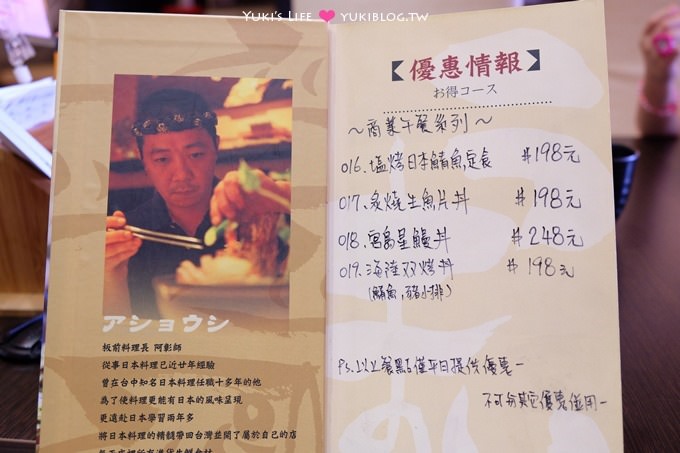 YUKI'S LIFE ❤ YUKIBLOG.TW
アショウシ
板前料理長 阿彰師
從事日本料理已近廿年經驗
曾在台中知名日本料理任職十多年的他
為了使料理更能有日本的風味呈現
更遠赴日本學習兩年多
將日本料理的精髓帶回台灣並開了屬於自己的店
【優惠情報】
お得コース
～商業午餐系列～
016.塩烤日本鯖魚定食 #198元
017.炙燒生魚片丼 #198元
018.宮島星鰻丼 #248元
019.海陸双烤丼 #198元
(鯖魚,豬小排)
Ps.以上餐點僅平日提供優惠-
不可与其它優惠併用-